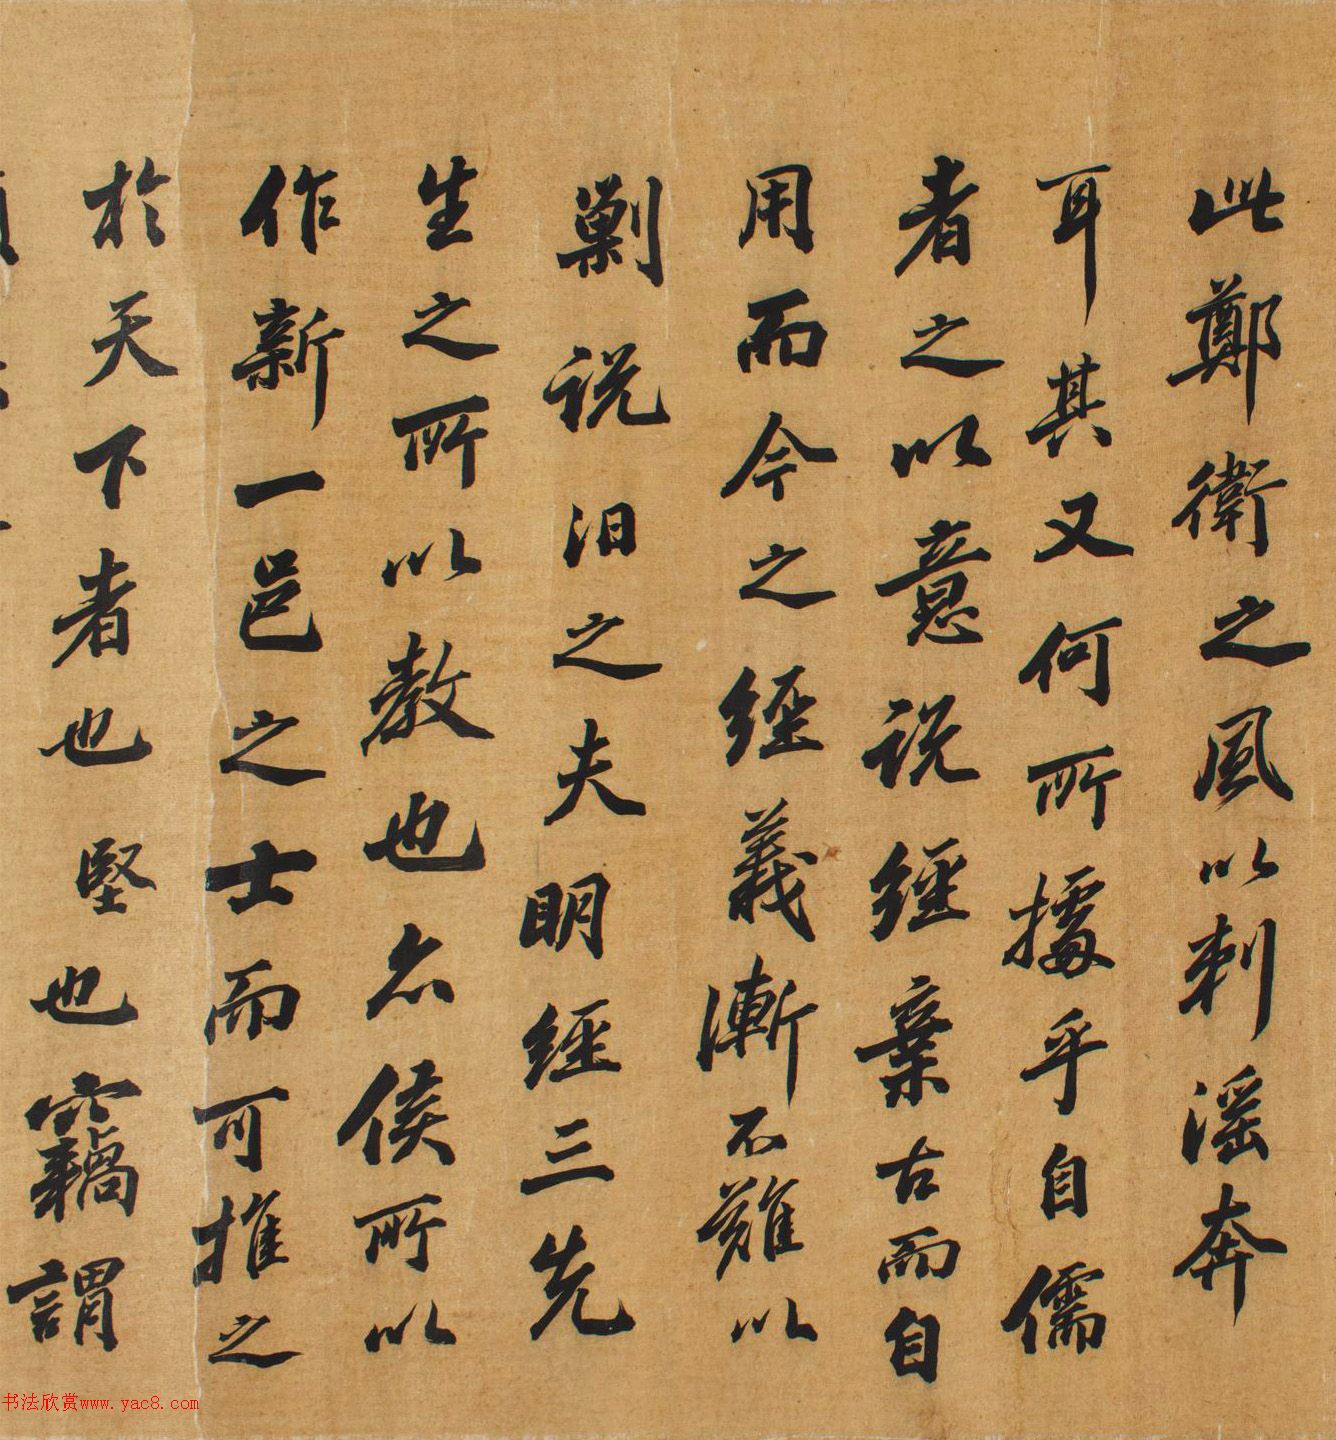 此鄭衛之風以刺淫奔
耳其又何所據乎自儒
者之以意說經棄古而自
用而今之經義漸不難以
剿說汩之夫明經三先
生之所以教也亦侯所以
作新一邑之士而可推之
於天下者也堅也竊謂
书法欣赏www.yac8.com